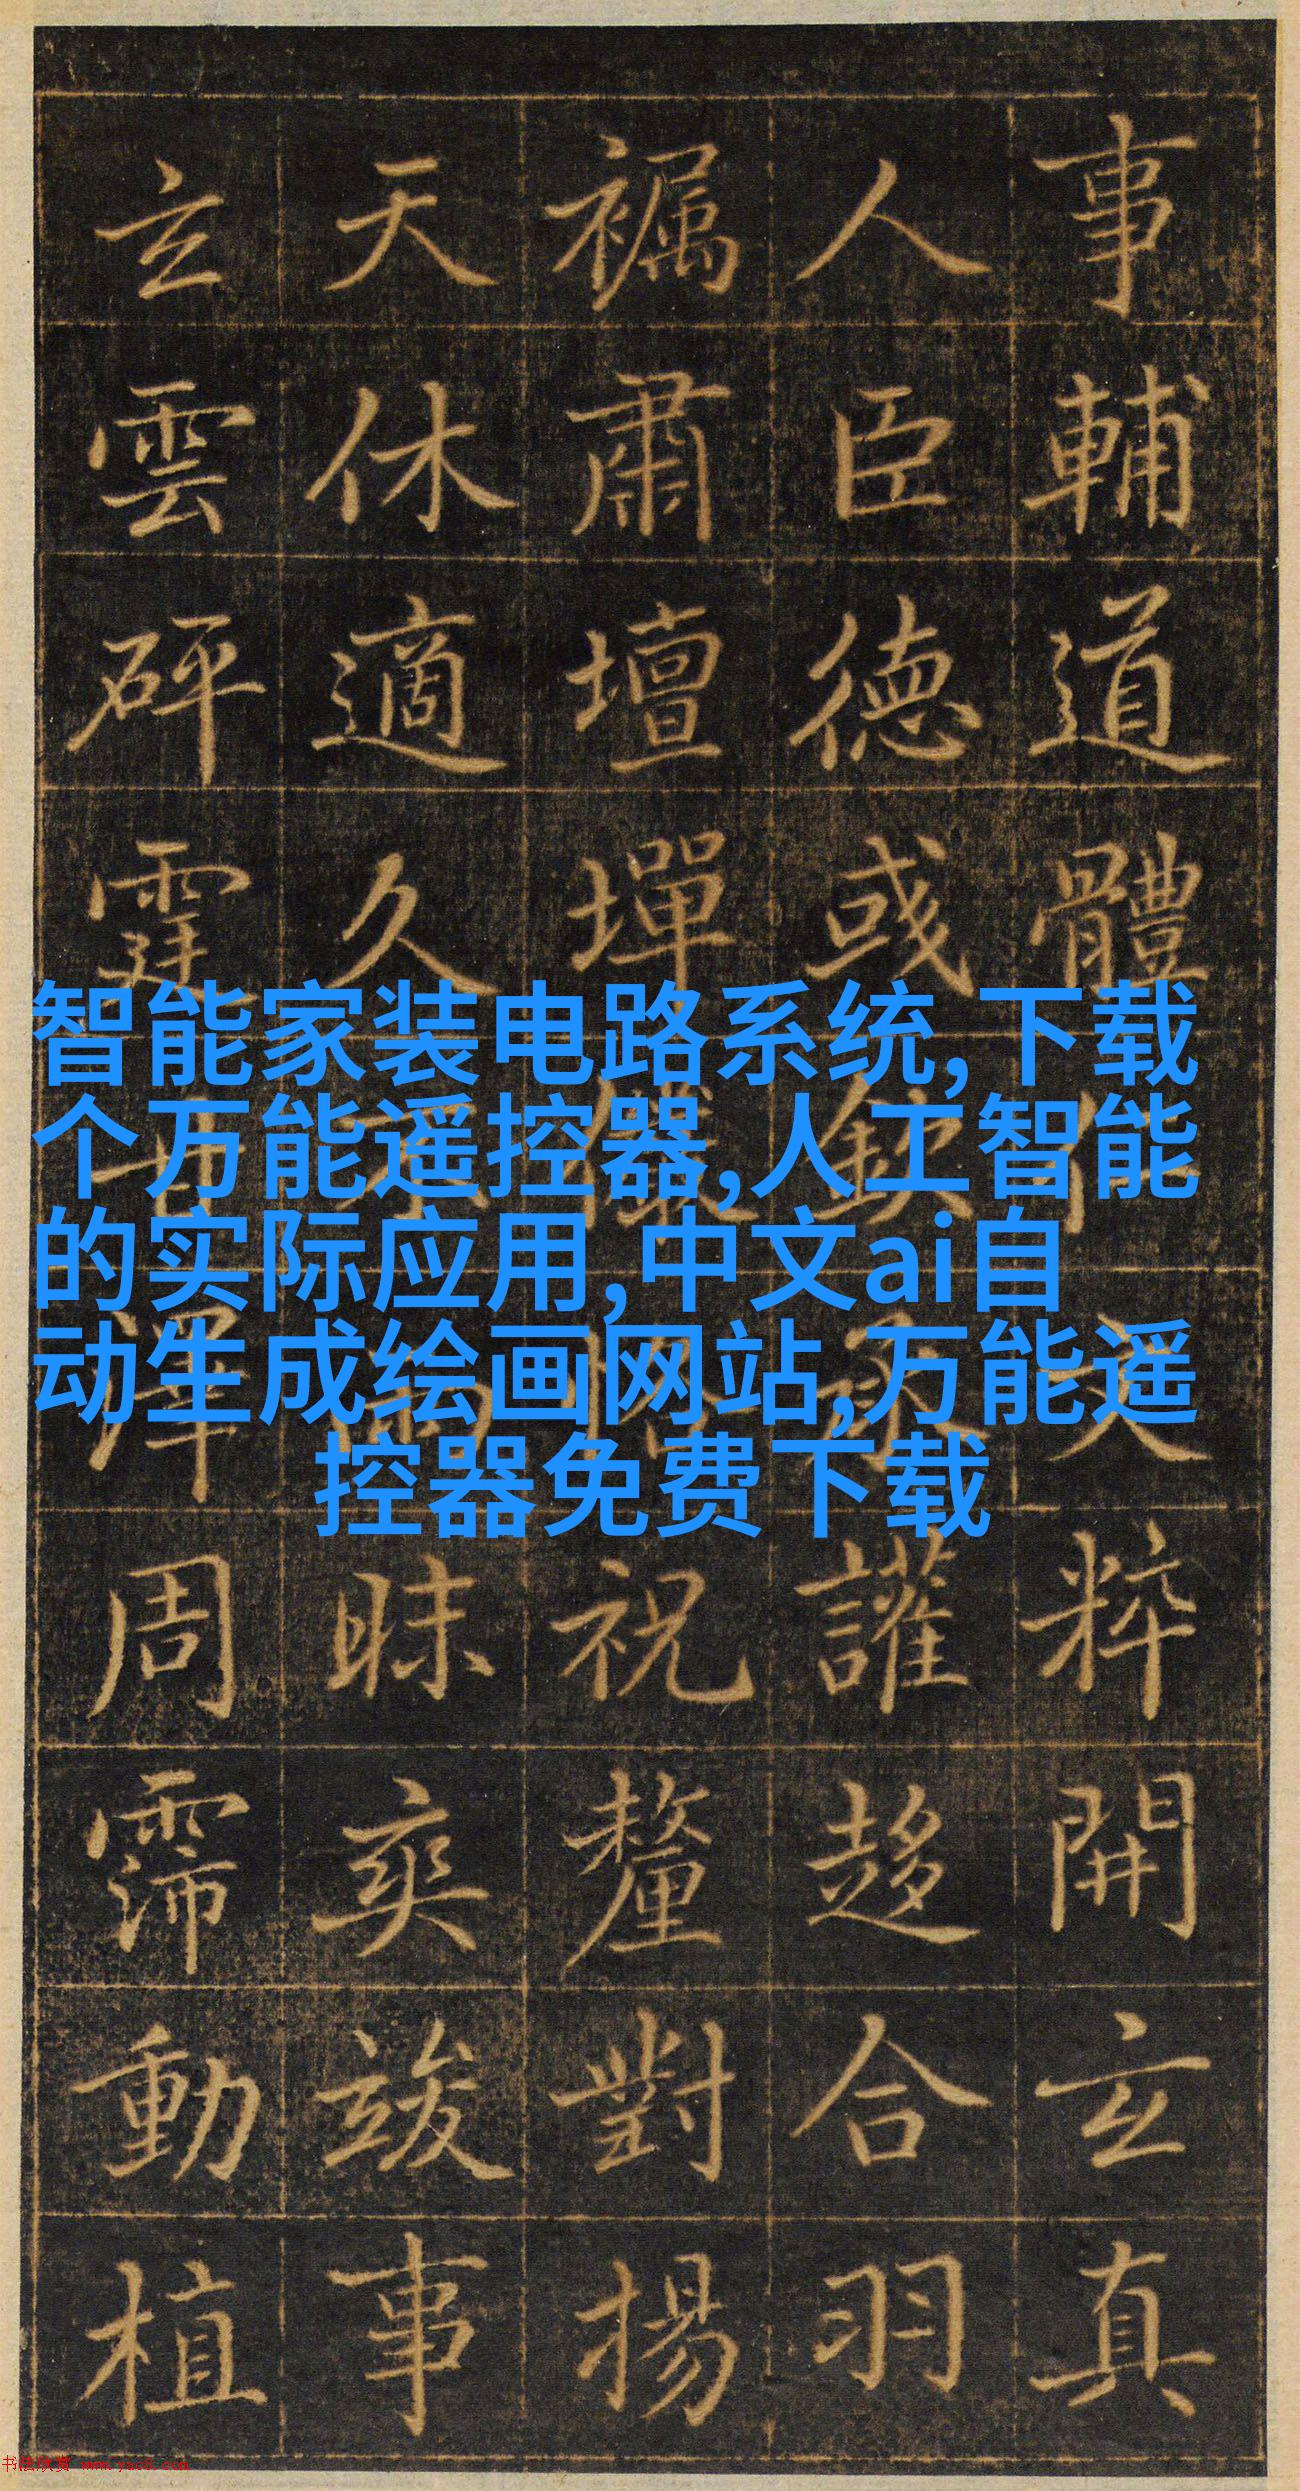 智能家装电路系统,下载
个万能遥控器,人工智能
的实际应用,中文ai自
动生成绘画网站,万能遥
控器免费下载
事輔道體文粹開玄真
人臣德或欽承讙趍合羽
襡肅壇墠儀祝釐對揚
天休適久不雨昧爽竣事
玄雲砰霆甘澤周霈動植
书法欣赏 www.yac8.com